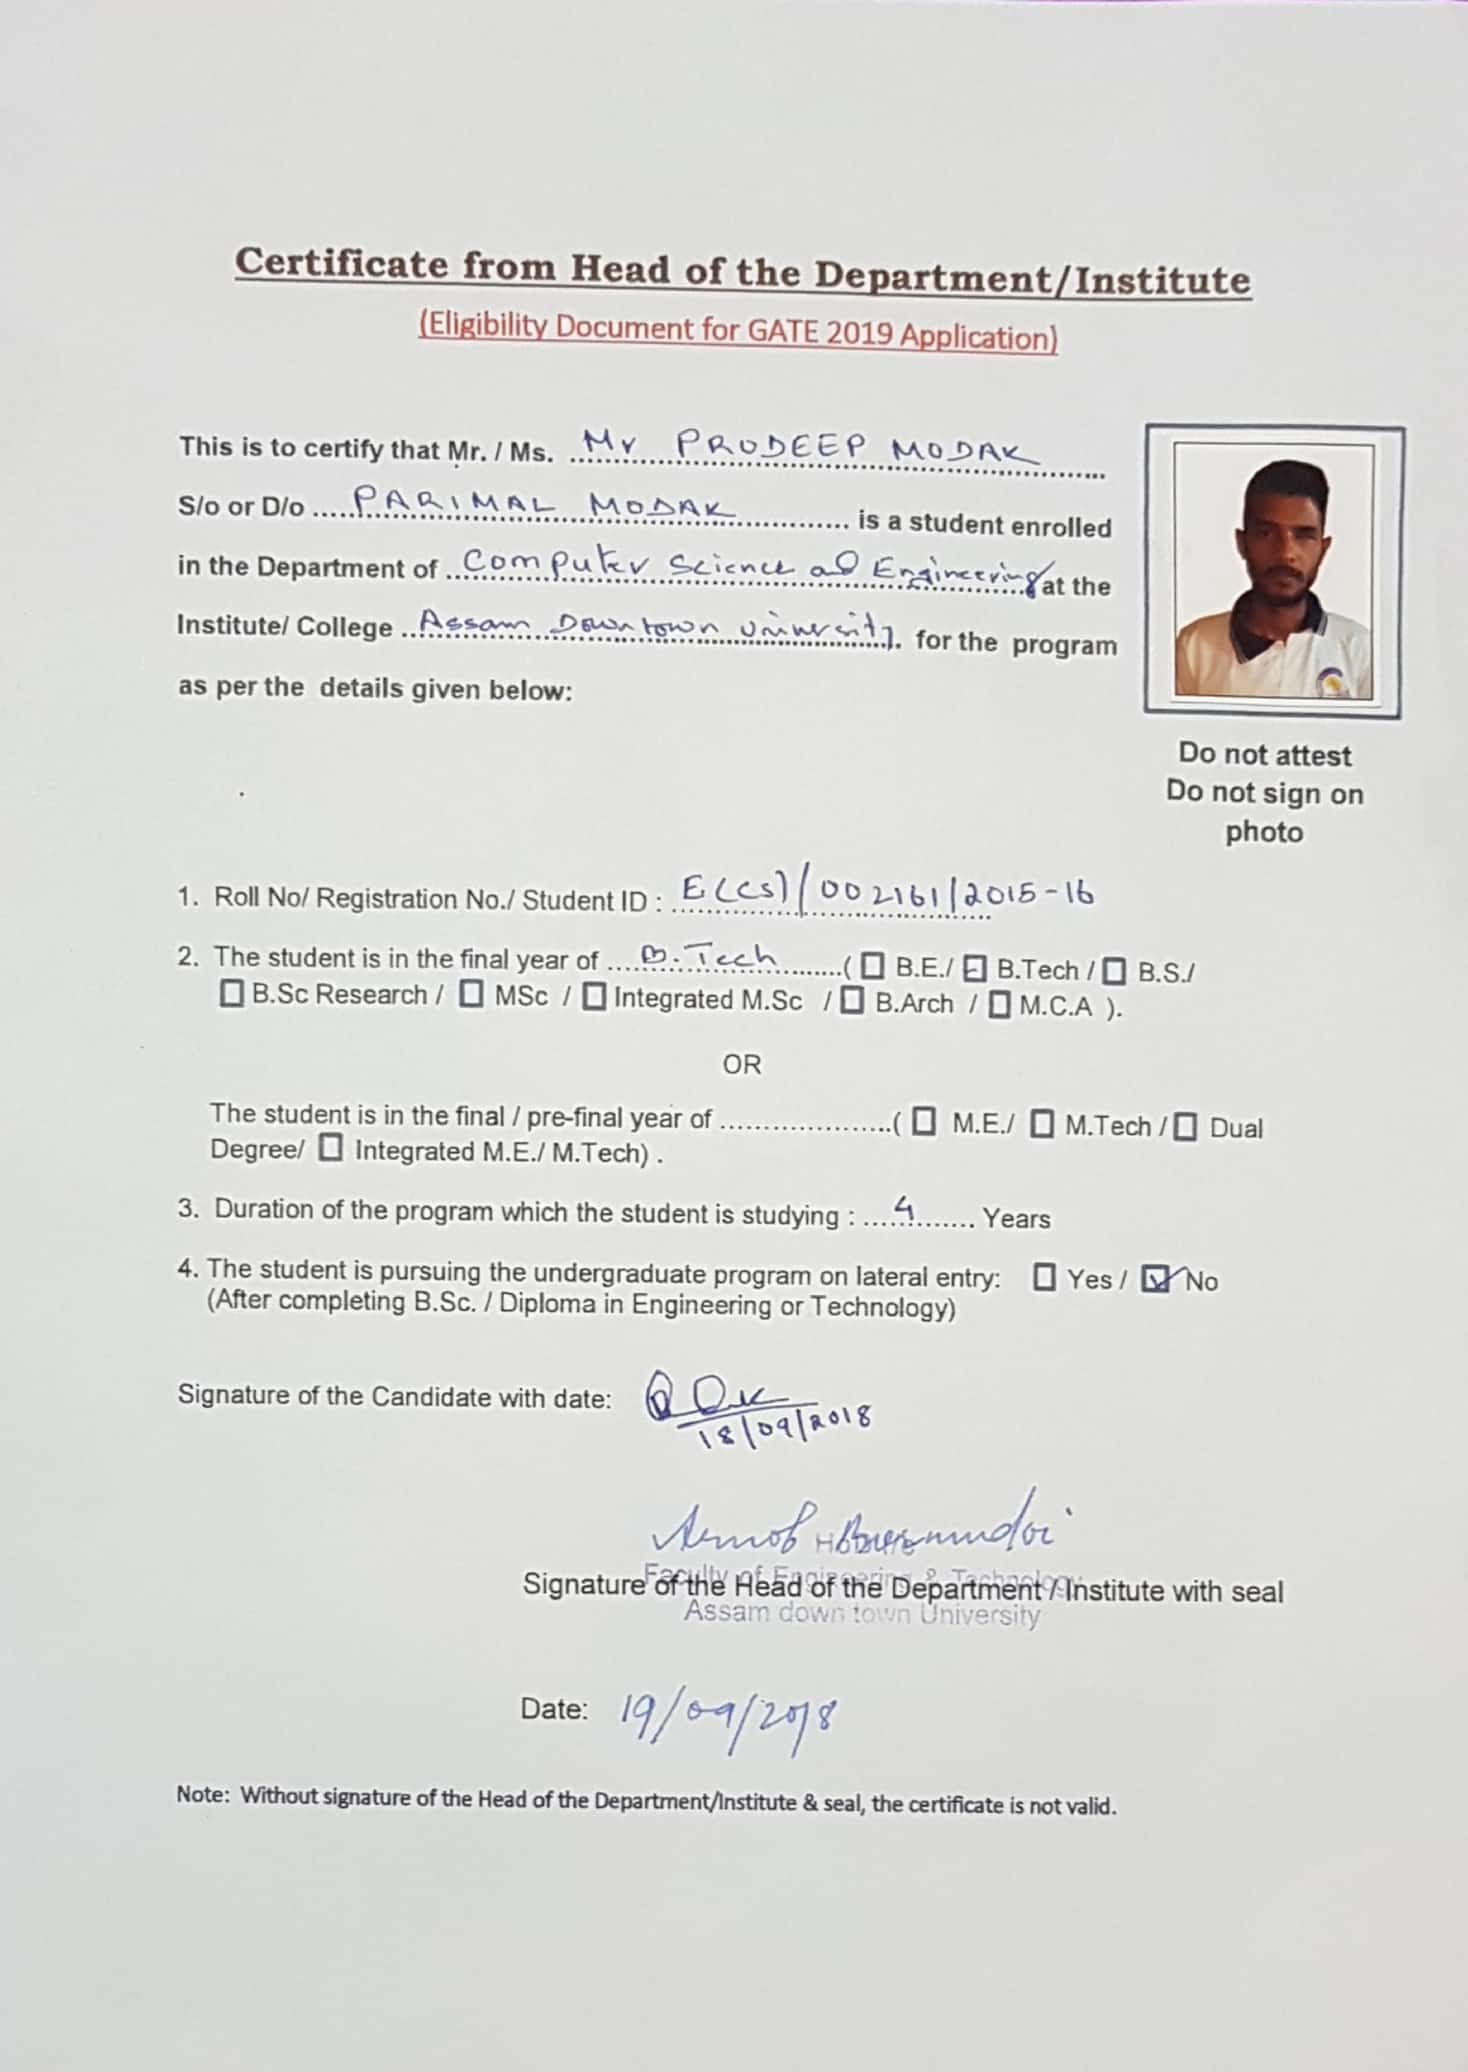 Certificate from Head of the Department/Institute
(Eligibility Document for GATE 2019 Application)
This is to certify that Mr. / Ms. Mr PRODEEP MODAK
S/o or D/o PARIMAL MODAK is a student enrolled
in the Department of Computer Science ad Engineering at the
Institute/ College Assam Downtown University. for the program
as per the details given below:
Do not attest
Do not sign on
photo
1. Roll No/ Registration No./ Student ID : E(CS)/002161/2015-16
2. The student is in the final year of B.Tech (☐ B.E./ ☑ B.Tech / ☐ B.S./
☐ B.Sc Research / ☐ MSc / ☐ Integrated M.Sc / ☐ B.Arch / ☐ M.C.A ).
OR
The student is in the final / pre-final year of ....................( ☐ M.E./ ☐ M.Tech / ☐ Dual
Degree/ ☐ Integrated M.E./ M.Tech) .
3. Duration of the program which the student is studying : 4 Years
4. The student is pursuing the undergraduate program on lateral entry: ☐ Yes / ☑ No
(After completing B.Sc. / Diploma in Engineering or Technology)
Signature of the Candidate with date:
18/09/2018
Faculty of Engineering & Technology
Signature of the Head of the Department / Institute with seal
Assam down town University
Date: 19/09/2018
Note: Without signature of the Head of the Department/Institute & seal, the certificate is not valid.